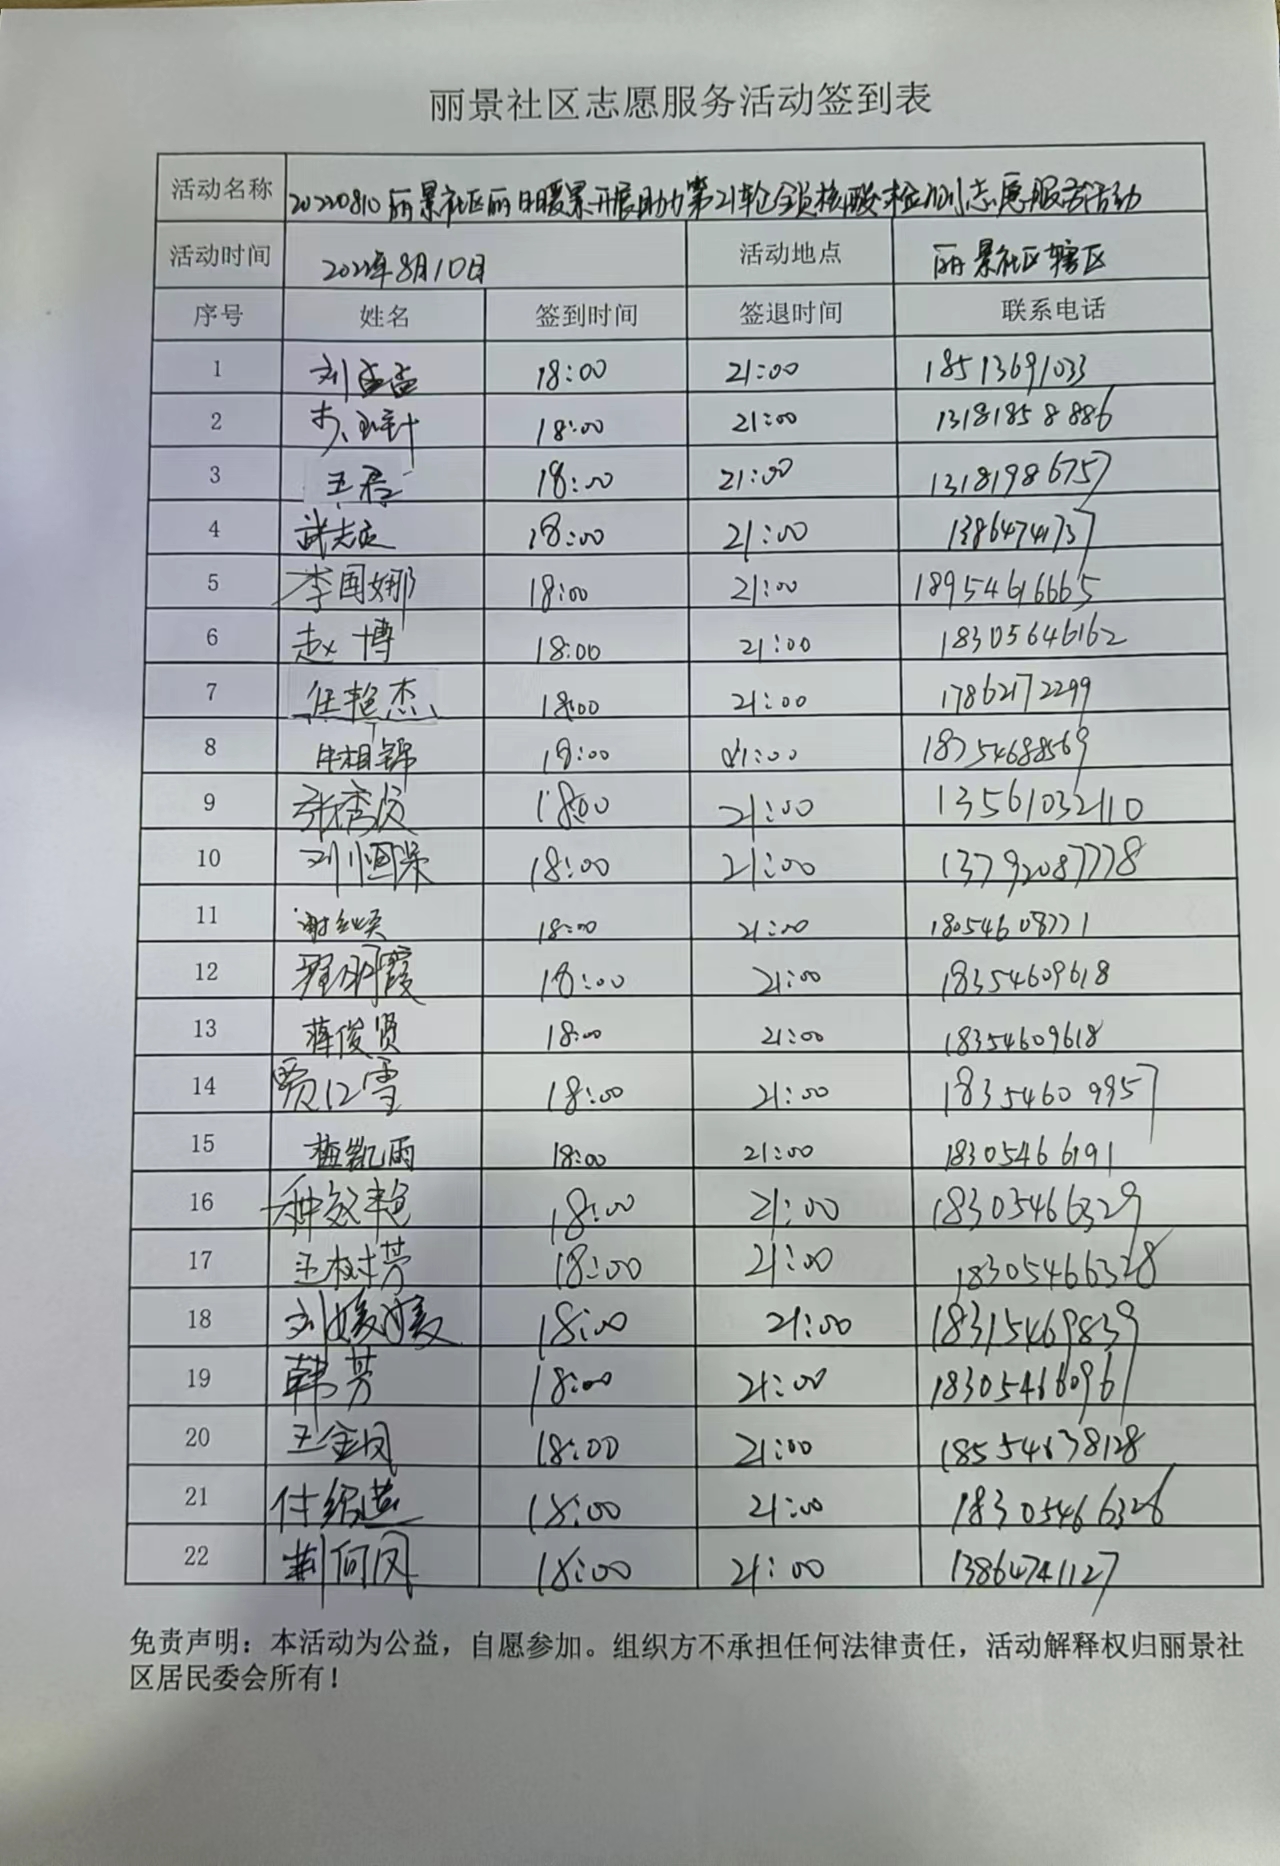 丽景社区志愿服务活动签到表
活动名称 20220810丽景社区丽日暖景开展助力第21轮全员核酸检测志愿服务活动
活动时间 2022年8月10日 活动地点 丽景社区辖区
序号 姓名 签到时间 签退时间 联系电话
1 刘孟孟 18:00 21:00 18513691033
2 18:00 21:00 13181858886
3 王君 18:00 21:00 13181986757
4 18:00 21:00 13864741737
5 李国娜 18:00 21:00 18954616665
6 赵博 18:00 21:00 18305646162
7 任艳杰 18:00 21:00 17862172299
8 牛相锦 18:00 21:00 18754688569
9 张秀贞 18:00 21:00 13561032110
10 刘恒深 18:00 21:00 13792087778
11 18:00 21:00 18054608771
12 翟明霞 18:00 21:00 18354609618
13 蒋俊贤 18:00 21:00 18354609618
14 贾江雪 18:00 21:00 18354609957
15 梅凯雨 18:00 21:00 18305466191
16 种效艳 18:00 21:00 18305466329
17 王树芳 18:00 21:00 18305466328
18 刘媛媛 18:00 21:00 18315469839
19 韩芳 18:00 21:00 18305466096
20 王金凤 18:00 21:00 18554638128
21 付绍燕 18:00 21:00 18305466326
22 荆何凤 18:00 21:00 13864741127
免责声明：本活动为公益，自愿参加。组织方不承担任何法律责任，活动解释权归丽景社
区居民委会所有！